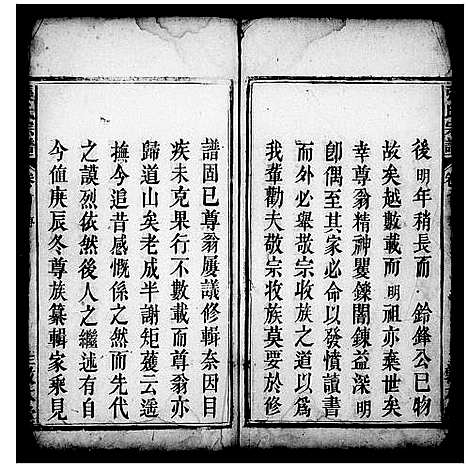 後明年稍長而 鈐鋒公已物
故矣越數載而明祖亦棄世矣
幸尊翁精神矍鑠閱鍊益深明
卽偶至其家必命以發憤讀書
而外必舉敬宗收族之道以爲
我輩勸夫敬宗收族莫要於修
譜固已尊翁屢議修輯奈因目
疾未克果行不數載而尊翁亦
歸道山矣老成半謝矩蒦云遥
撫今追昔感慨係之然而先代
之謨烈依然後人之繼述有自
今值庚辰冬尊族纂輯家乘見